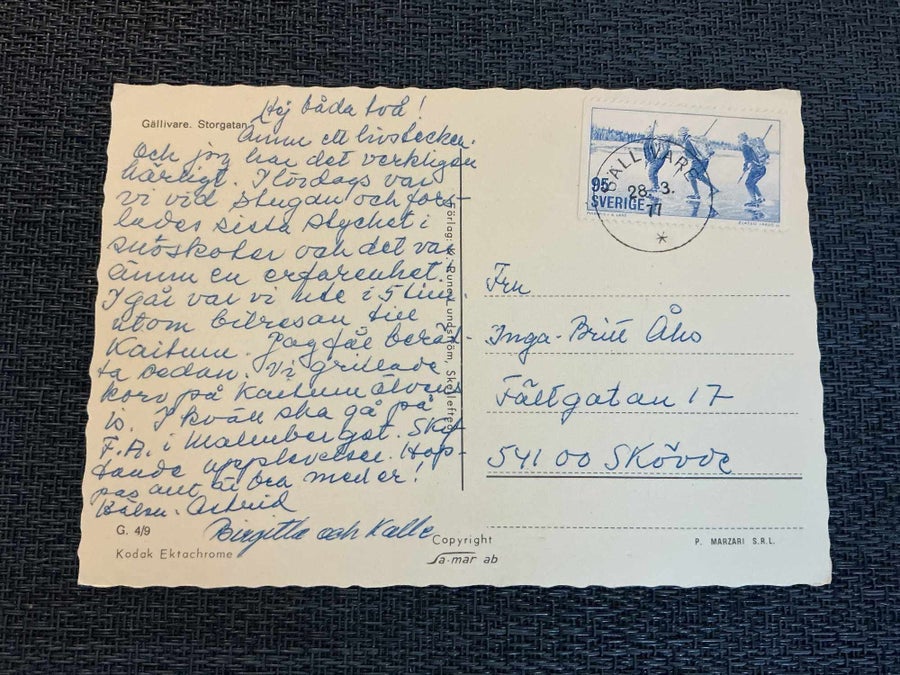 Gällivare. Storgatan
Hej båda två!
Ännu ett livstecken.
Och jag har det verkligen
härligt. I lördags var
vi vid stugan och för-
lades sista stycket i
snöskoter och det var
ännu en erfarenhet.
I går var vi ute i 5 tim.
utom bilresan till
Kaitum. Jag får berät-
ta sedan. Vi grillade
korv på Kaitum älvens
is. I kväll ska gå på
F.A. i Malmberget.
upplevelse. Hop-
pas allt är bra med er!
Astrid
Birgitta och Kalle
G. 4/9
Kodak Ektachrome
Förlag: Rune Lundström, Skellefteå
Copyright
Sa-mar ab
P. MARZARI S.R.L.
95
SVERIGE
GÄLLIVARE
28.3.
77
Fru
Inga-Britt Åho
Fältgatan 17
541 00 Skövde